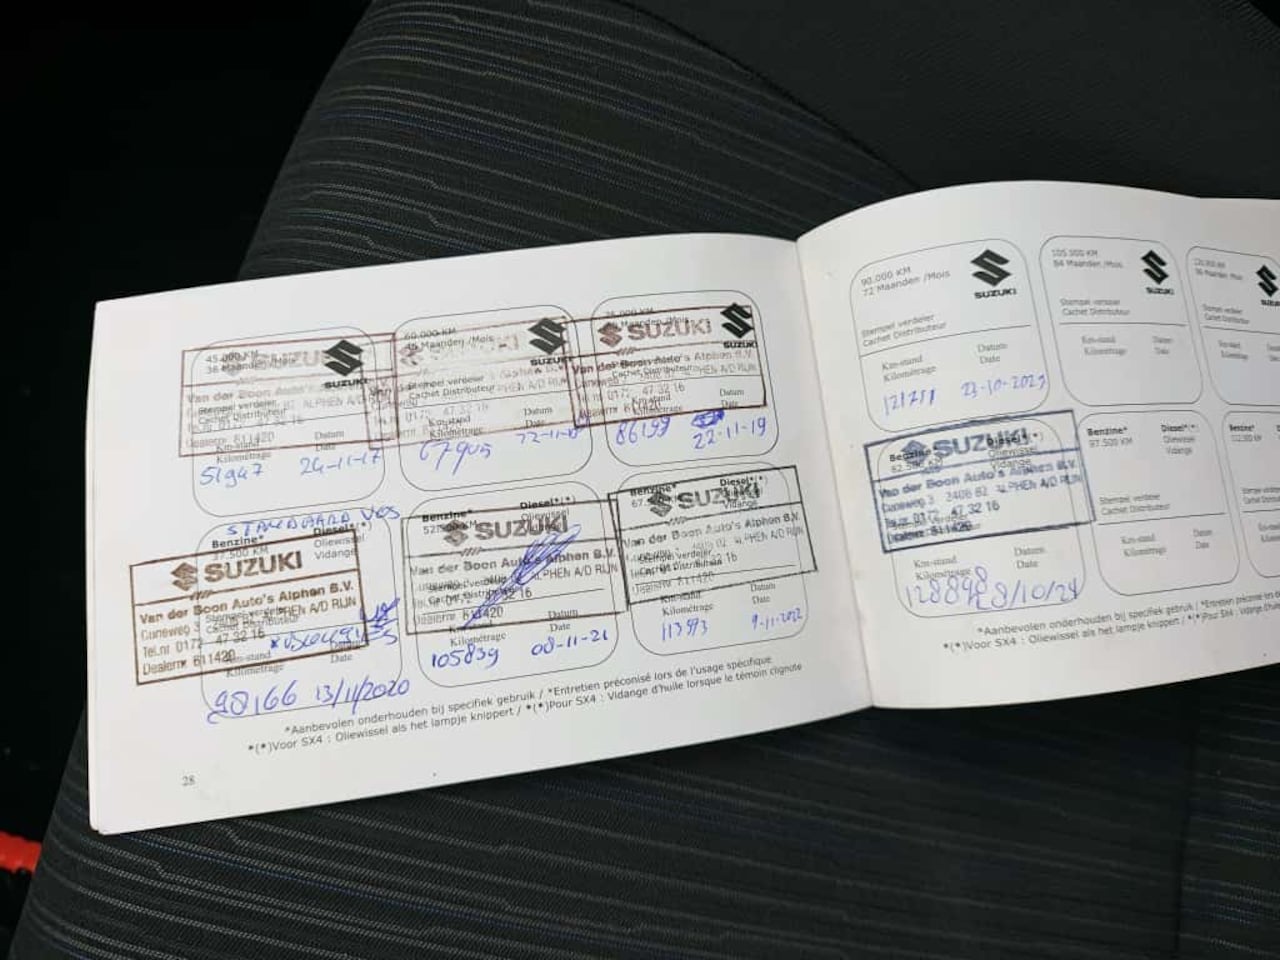 45.000 KM
36 Maanden /Mois
SUZUKI
Van der Boon Auto's Alphen B.V.
Stempel verdeler
Cachet Distributeur
ALPHEN A/D RIJN
47 32 16
Dealernr 611420
Datum
Date
Kilométrage
51947 24-11-17
60.000 KM
Maanden /Mois
SUZUKI
Stempel verdeler
Cachet Distributeur
0172 47 32 16
Km-stand
Kilométrage
Datum
Date
67905
SUZUKI
SUZUKI
Van der Boon Auto's Alphen B.V.
Cachet Distributeur
ALPHEN A/D RIJN
47 32 16
Km-stand
Kilométrage
Datum
Date
86199 22-11-19
STANDAARD VOS
Benzine*
37.500 KM
Diesel*(*)
Oliewissel
Vidange
SUZUKI
Van der Boon Auto's Alphen B.V.
Stempel verdeler
Cachet Distributeur
Tel.nr 0172 47 32 16
Dealernr 611420
Km-stand
Kilométrage
Date
98166 13/11/2020
Benzine*
Diesel*(*)
Oliewissel
Vidange
SUZUKI
Van der Boon Auto's Alphen B.V.
ALPHEN A/D RIJN
Kilométrage
Datum
Date
105839 08-11-21
Benzine*
Diesel*(*)
Vidange
SUZUKI
Van der Boon Auto's Alphen B.V.
Stempel verdeler
Cachet Distributeur
Dealernr 611420
Km-stand
Kilométrage
Datum
Date
113993 9-11-2022
*Aanbevolen onderhouden bij specifiek gebruik / *Entretien préconisé lors de l'usage spécifique
*(*)Voor SX4 : Oliewissel als het lampje knippert / *(*)Pour SX4 : Vidange d'huile lorsque le témoin clignote
28
90.000 KM
72 Maanden /Mois
SUZUKI
Stempel verdeler
Cachet Distributeur
Km-stand
Kilométrage
Datum
Date
23-10-2023
105.000 KM
84 Maanden /Mois
SUZUKI
Stempel verdeler
Cachet Distributeur
Km-stand
Kilométrage
Datum
Date
120.000 KM
96 Maanden /Mois
SUZUKI
Stempel verdeler
Cachet Distributeur
Km-stand
Kilométrage
Datum
Date
Benzine*
Diesel*(*)
Oliewissel
Vidange
SUZUKI
Van der Boon Auto's Alphen B.V.
Cuneweg 3 2408 82 ALPHEN A/D RIJN
Tel.nr 0172 47 32 16
Dealernr 611420
Km-stand
Kilométrage
Datum
Date
128898 28/10/24
Benzine*
97.500 KM
Diesel*(*)
Oliewissel
Vidange
Stempel verdeler
Cachet Distributeur
Km-stand
Kilométrage
Datum
Date
Benzine*
112.500 KM
Stempel verdeler
Cachet Distributeur
Km-stand
Kilométrage
*Aanbevolen onderhouden bij specifiek gebruik / *Entretien préconisé
*(*)Voor SX4 : Oliewissel als het lampje knippert / *(*)Pour SX4 : Vidange